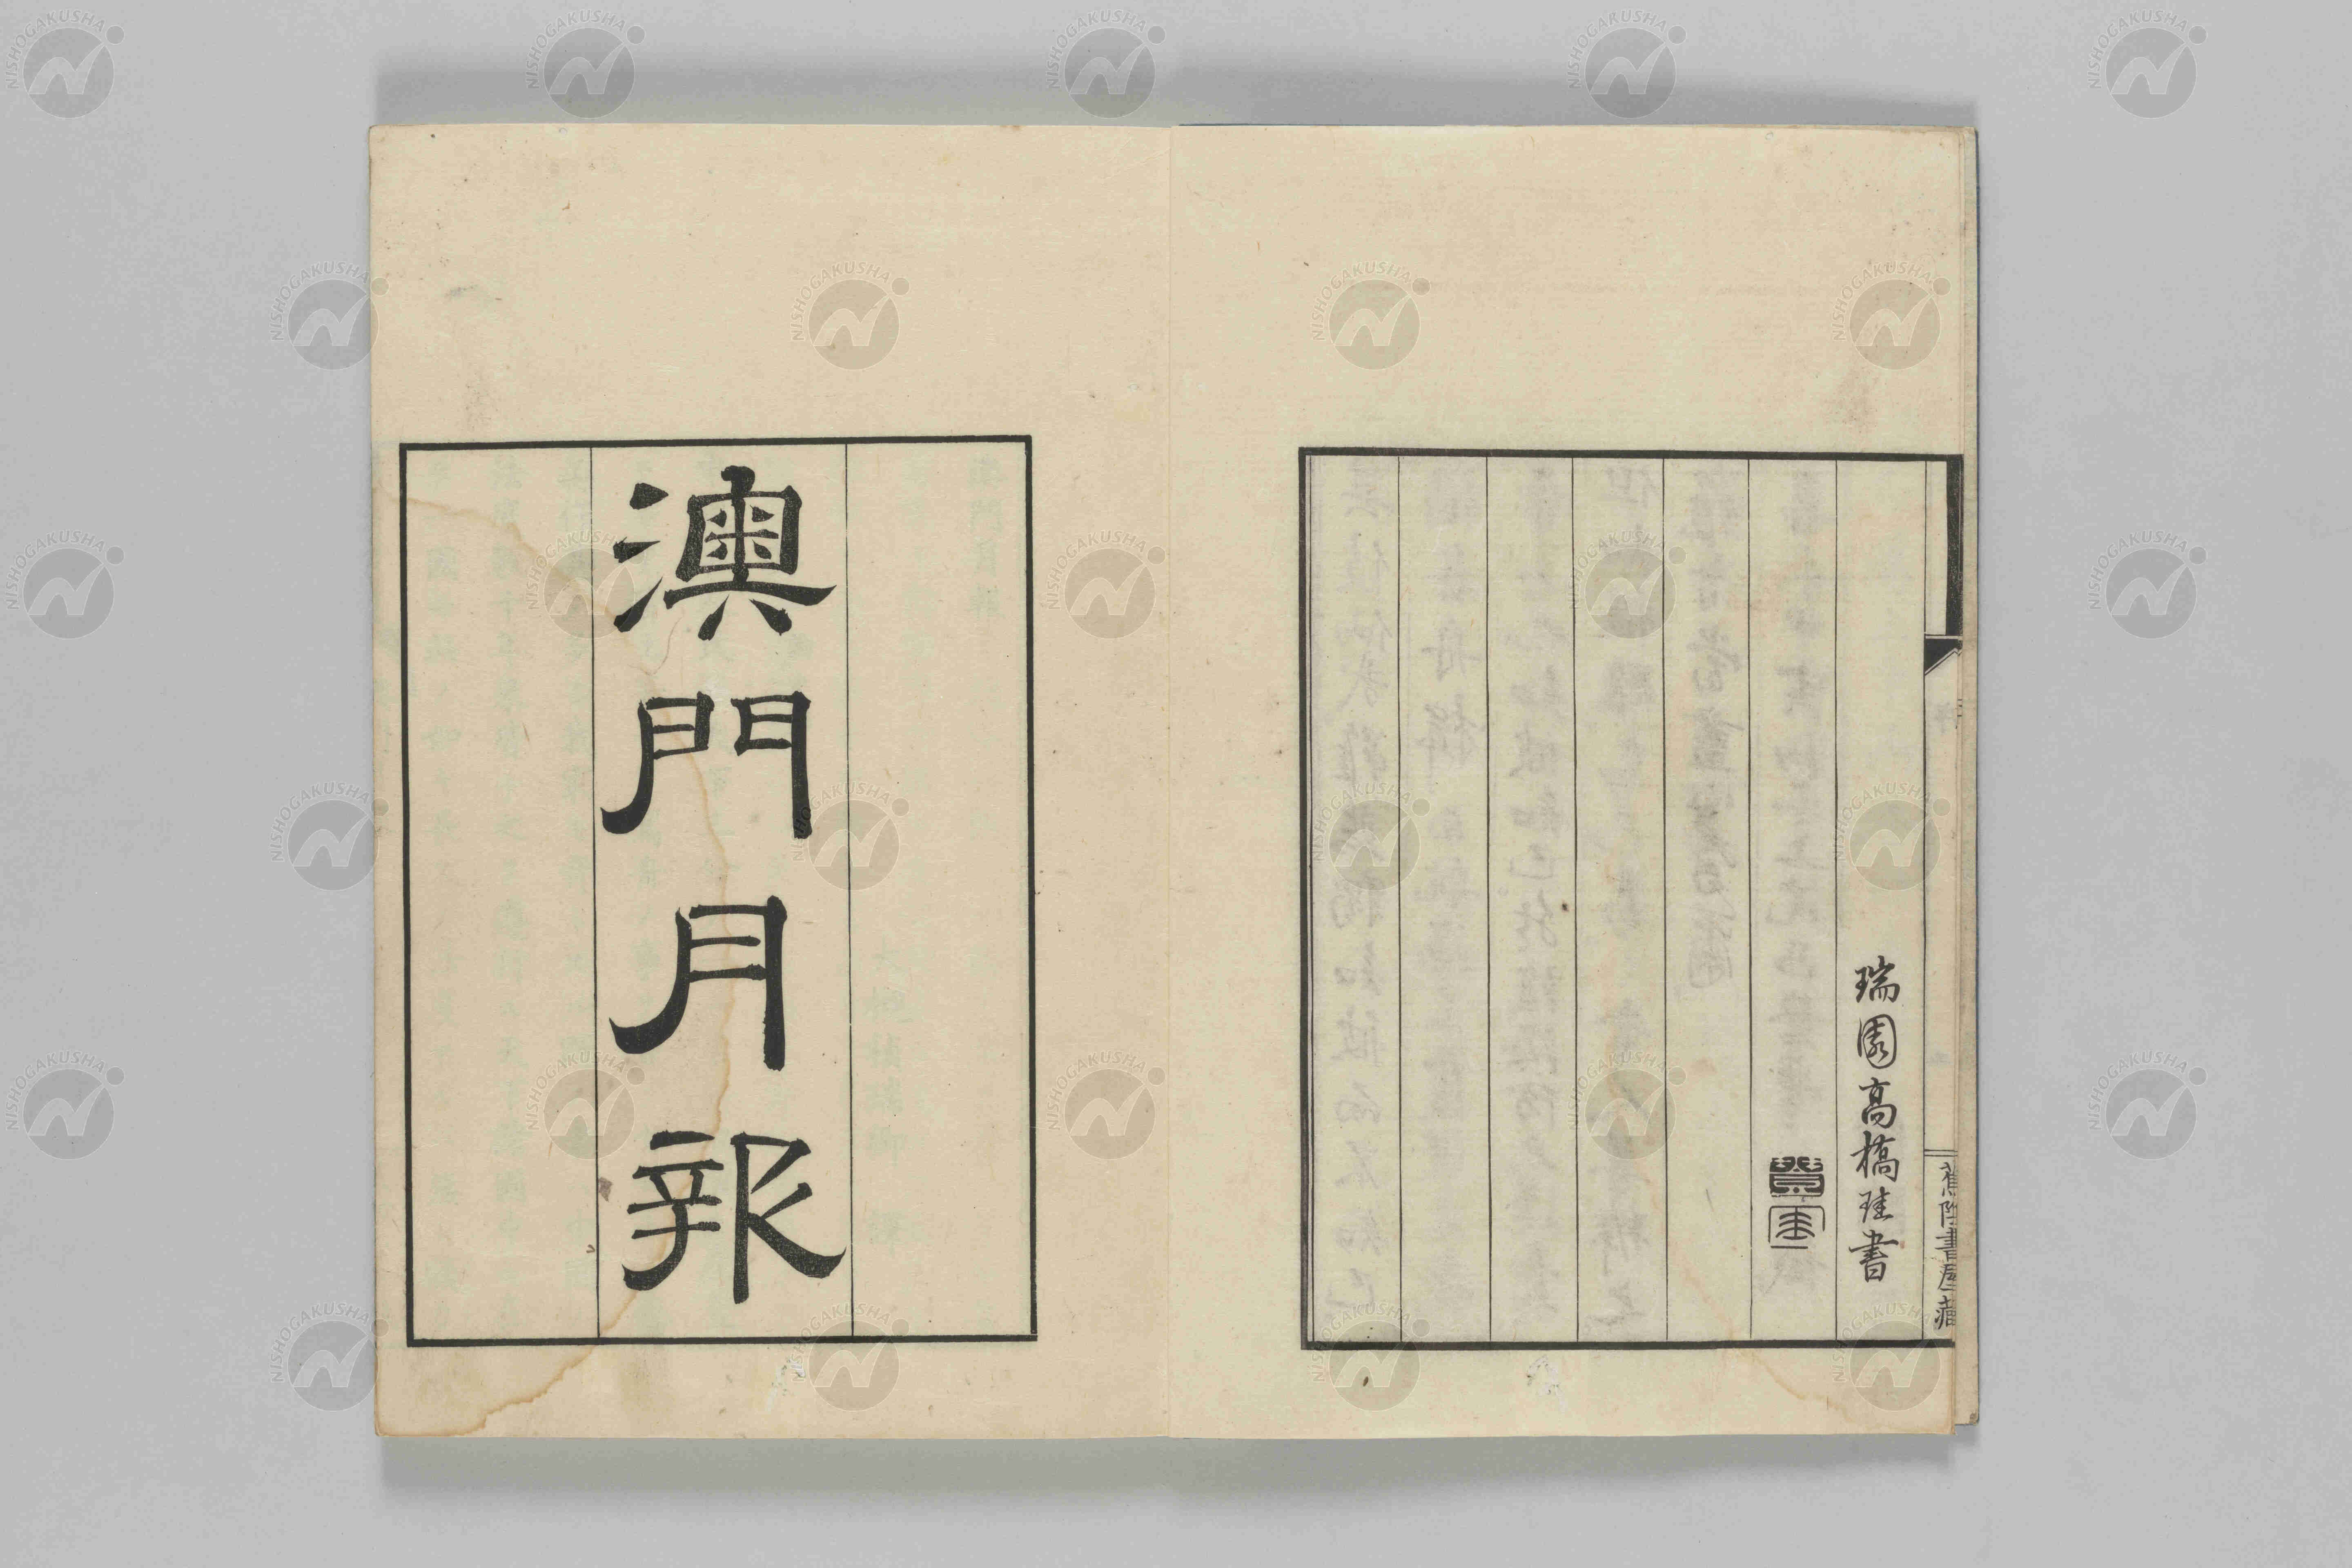 瑞園高橋珪書
書屋藏
澳門月報
NISHOGAKUSHA